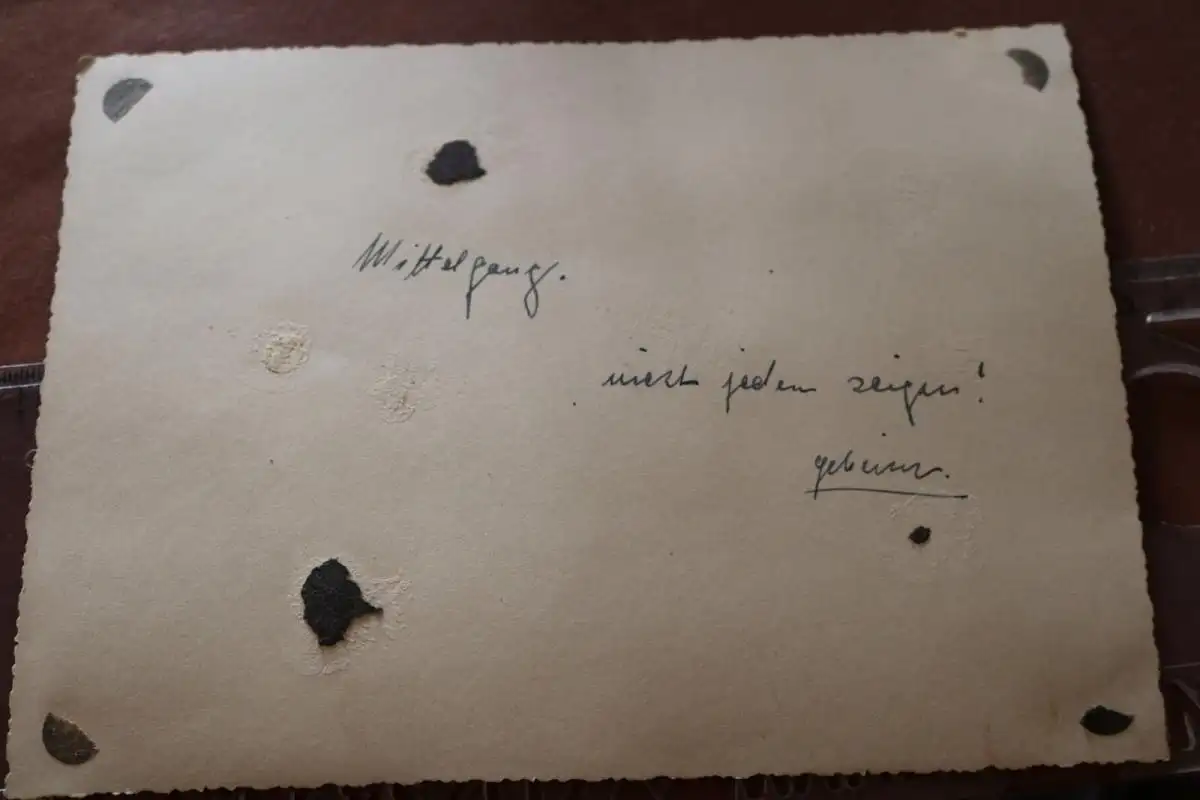 Mittelgang.
nicht jedem zeigen!
geheim.